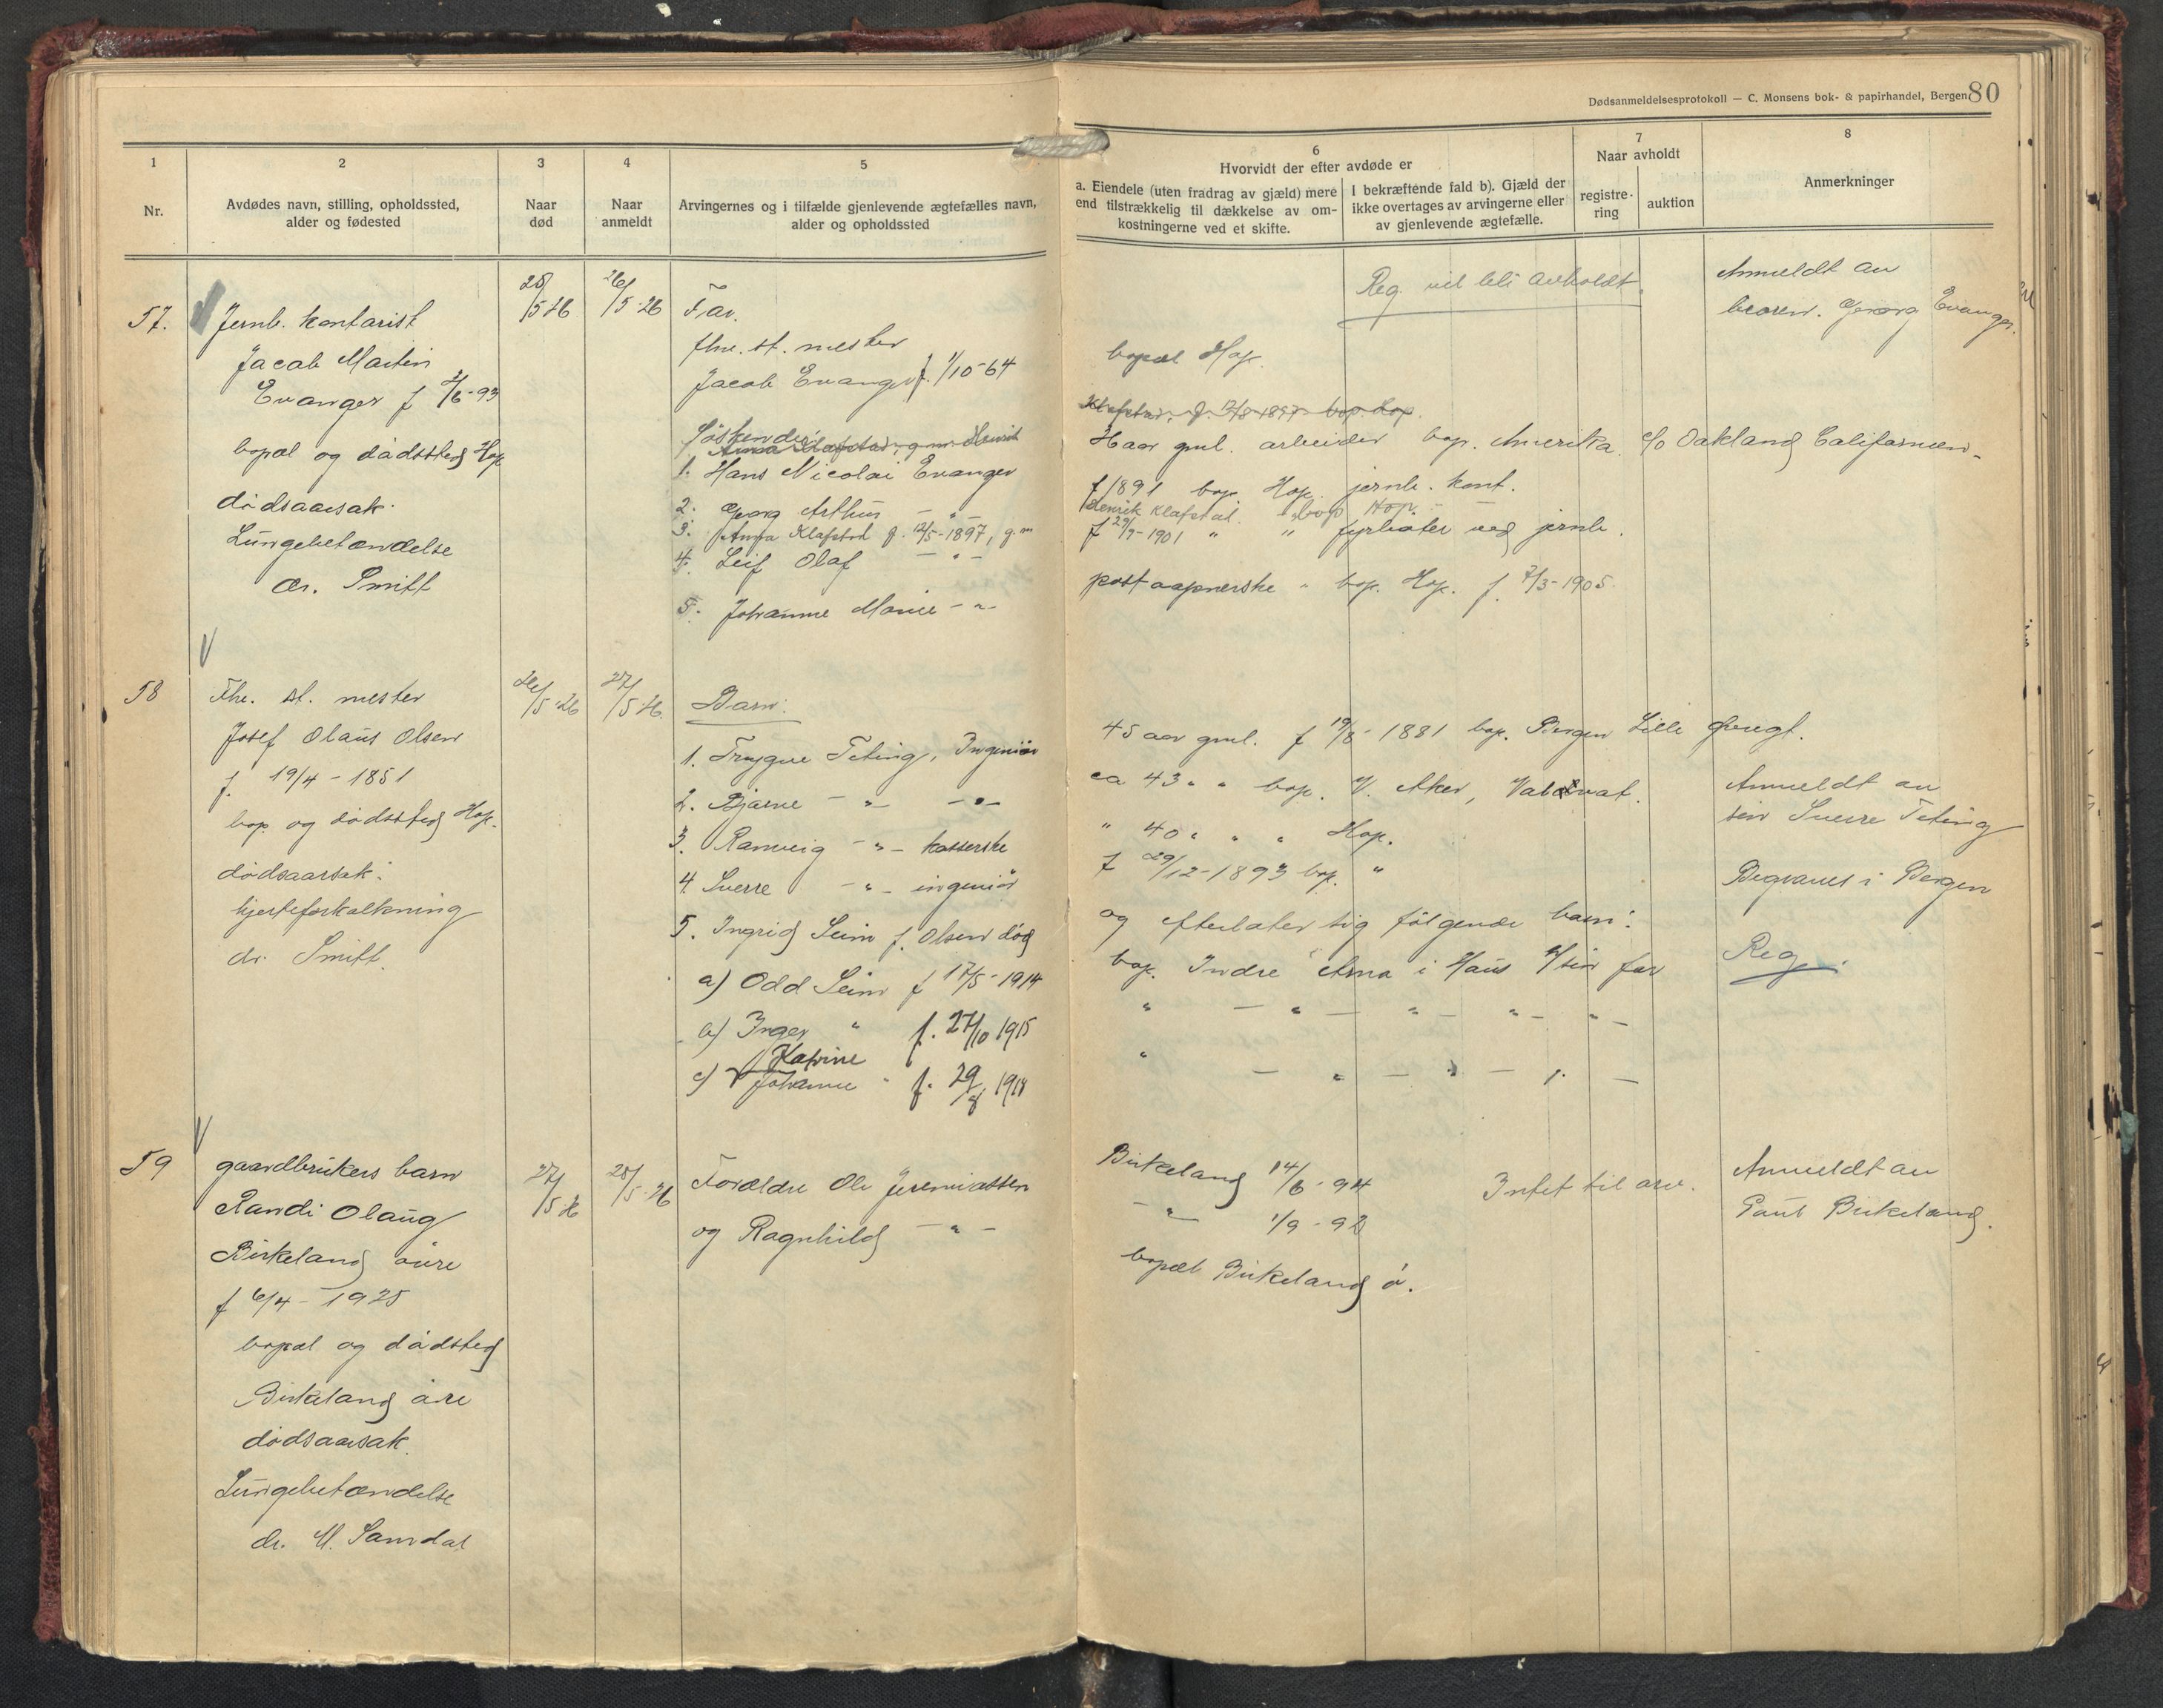 Dødsanmeldelsesprotokoll — C. Monsens bok- & papirhandel, Bergen
80
1
Nr.
2
Avdødes navn, stilling, opholdssted,
alder og fødested
3
Naar
død
4
Naar
anmeldt
5
Arvingernes og i tilfælde gjenlevende ægtefælles navn,
alder og opholdssted
6
Hvorvidt der efter avdøde er
a. Eiendele (uten fradrag av gjæld) mere
end tilstrækkelig til dækkelse av om-
kostningerne ved et skifte.
I bekræftende fald b). Gjæld der
ikke overtages av arvingerne eller
av gjenlevende ægtefælle.
7
Naar avholdt
registre-
ring
auktion
8
Anmerkninger
57.
Jernb. kontorist
Jacob Martin
Evanger f 2/6-93
bopæl og dødssted Hop
dødsaarsak.
Lungebetændelse
dr. Smitt
25/5-26
26/5-26
Far.
fhv. st. mester
Jacob Evanger f. 1/10-64
bopæl Hop.
Reg. vil bli avholdt.
Anmeldt av
broren. Georg Evanger.
Søskende:
1. Hans Nicolai Evanger
Haar gml. arbeider bop. Amerika c/o Oakland Californien.
2. Georg Arthur — " —
f 1891 bop. Hop. jernb. kont.
3. Anna Klafstad f. 12/5-1897, g.m
Henrik Klafstad. " bop Hop.
4. Leif Olaf — " —
f 29/7-1901 " " fyrbøter ved jernb.
5. Johanne Marie — " —
postaapnerske " bop. Hop. f. 7/3-1905.
58
Fhv. st. mester
Josef Olaus Olsen
f. 19/4-1851
bop og dødssted Hop.
dødsaarsak:
hjerteforkalkning
dr. Smitt.
26/5-26
27/5-26.
Barn:
1. Trygve Teting, Ingeniør
45 aar gml. f 19/8-1881 bop. Bergen Lille Øvregt.
2. Bjarne — " — — " —
ca 43 " " bop. V. Aker,
3. Ranveig — " — kasserske
" 40 " " " Hop.
4. Sverre — " — ingeniør
f 29/12-1893 bop. "
5. Ingrid Seim f. Olsen død
og efterlater sig følgende barn:
a) Odd Seim f 17/5-1914
bop. Indre Arna i Haus h/ sin far
b) Inger " f. 27/10 1915
" — " — " — " — " —
c) Katrine
Johanne " f. 29/8 1918
" — " — " — " —
Anmeldt av
søn Sverre Teting
Begraves i Bergen
Reg.
59
gaardbrukers barn
Randi Olaug
Birkeland øvre
f 6/4-1925
bopæl og dødsted
Birkeland øvre
dødsaarsak.
Lungebetændelse
dr. M. Samdal
27/5 26
28/5-26
Forældre Ole Jeremiassen
og Ragnhild — " —
Birkeland 14/6-94
— " — 1/9-92
bopæl Birkeland ø.
Intet til arv.
Anmeldt av
Paul Birkeland.